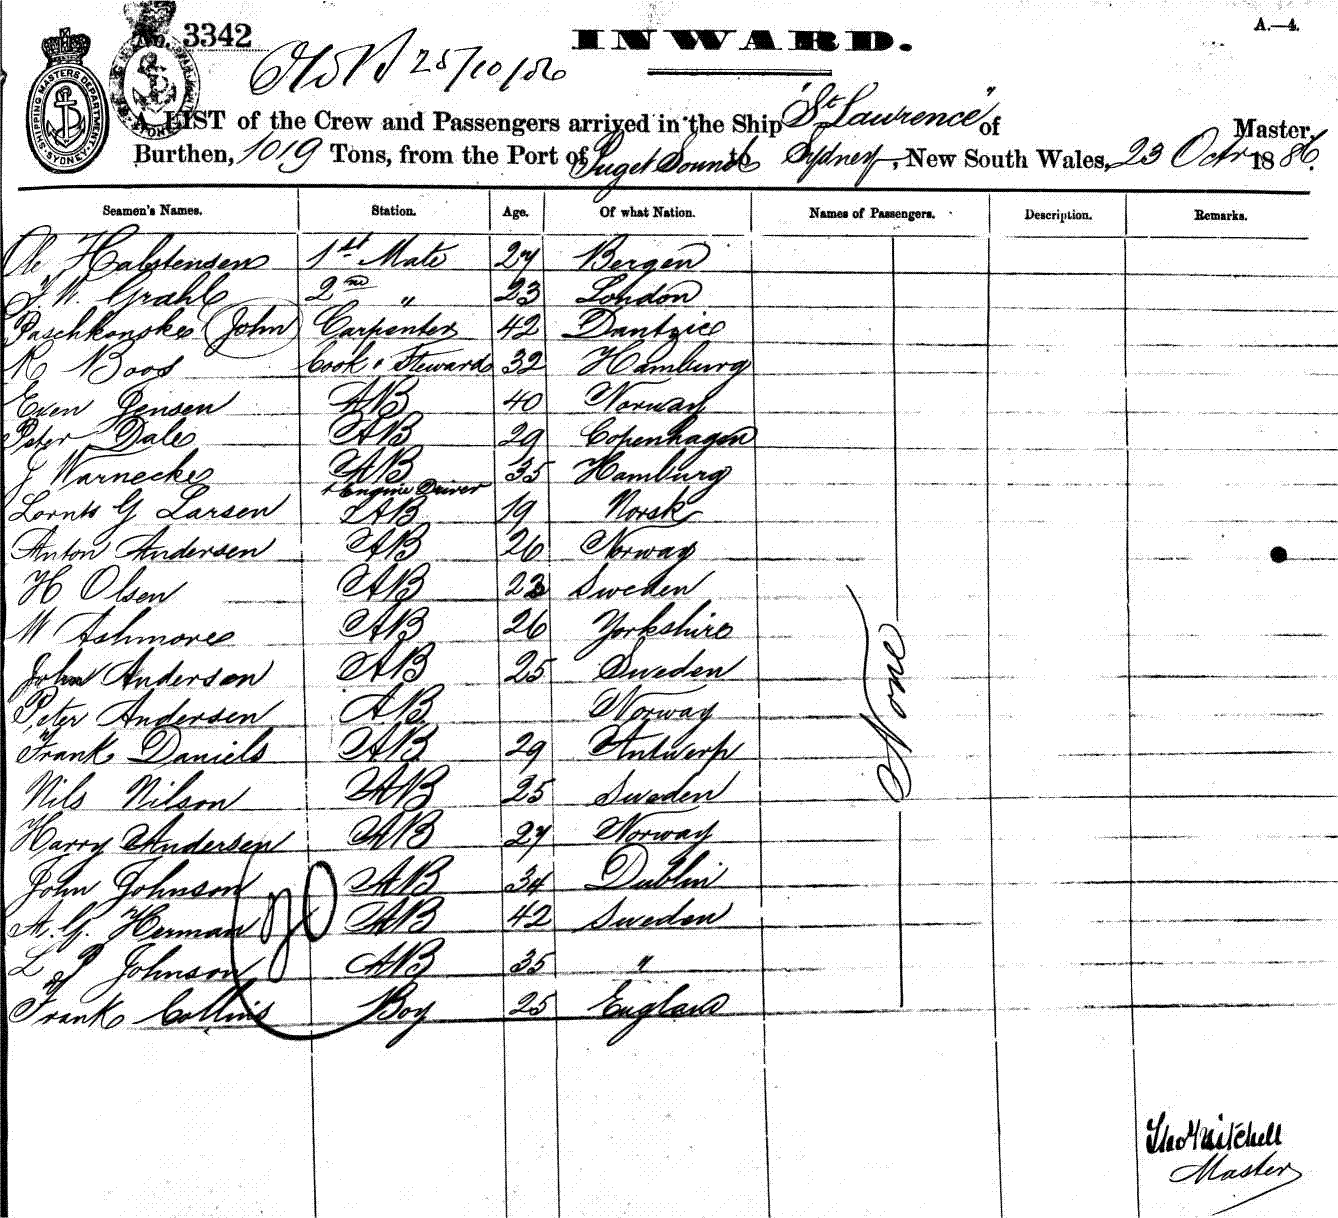 No. 3342
INWARD.
A.—4.
25/10/86
SHIPPING MASTERS DEPARTMENT SYDNEY
A LIST of the Crew and Passengers arrived in the Ship "St Lawrence" of Master,
Burthen, 1019 Tons, from the Port of Puget Sound to Sydney, New South Wales, 23 Octr 1886.
Seamen's Names. Station. Age. Of what Nation. Names of Passengers. Description. Remarks.
Ole Halstensen 1st Mate 27 Bergen
F. W. Grahl 2nd " 23 London
Paschkonske (John) Carpenter 42 Dantzic
R Boos Cook " Steward 32 Hamburg
Even Jensen AB 40 Norway
Peter Dale AB 29 Copenhagen
J Warnecke AB 35 Hamburg
+ Engine Driver
Lornts G Larsen AB 19 Norsk
Anton Andersen AB 26 Norway
H Olsen AB 23 Sweden
W Ashmore AB 26 Yorkshire
John Anderson AB 25 Sweden
Peter Andersen AB Norway
Frank Daniels AB 29 Antwerp
Nils Nilson AB 25 Sweden
Harry Andersen AB 27 Norway
John Johnson AB 34 Dublin
A. G. Herman AB 42 Sweden
L P Johnson AB 35 "
Frank Collins Boy 25 England
None
20
Thos Mitchell
Master